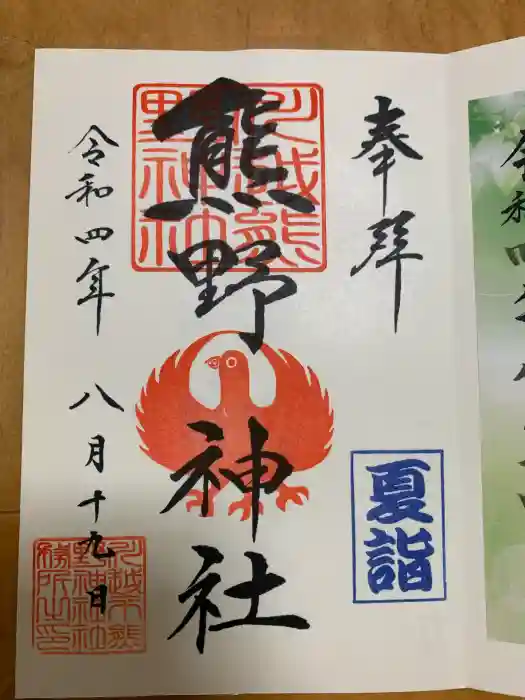 奉拝
夏詣
熊野神社
川越熊
野神社
令和四年 八月十九日
川越熊
野神社
務所之印
令和四年